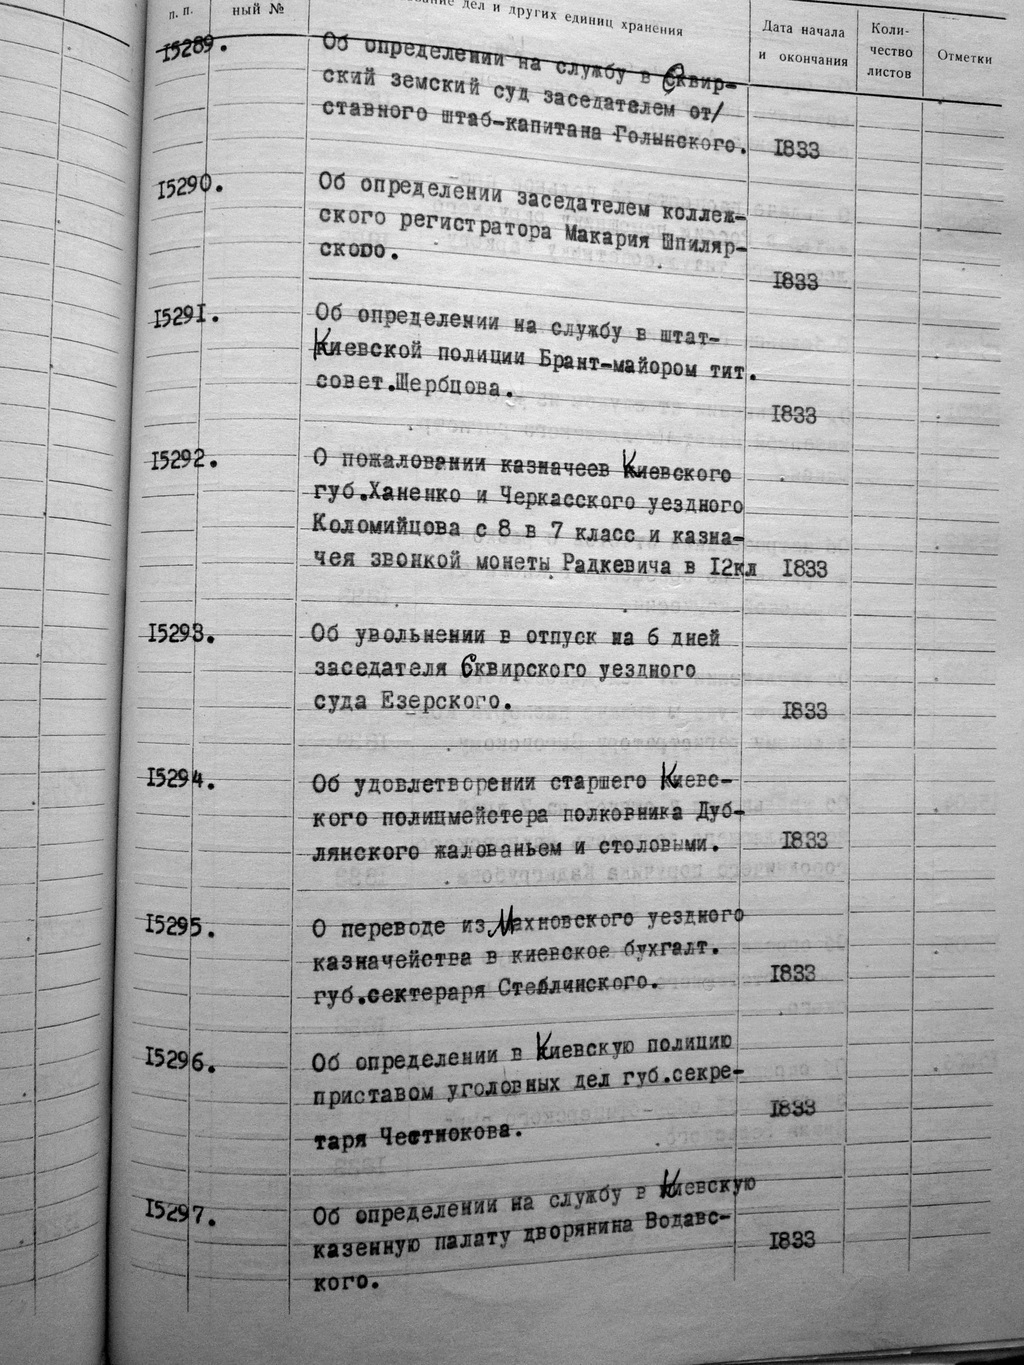 п. п.
ный №
дел и других единиц хранения
Дата начала
и окончания
Коли-
чество
листов
Отметки
I5289.
Об определении на службу в Сквир-
ский земский суд заседателем от/
ставного штаб-капитана Голынского.
I833
I5290.
Об определении заседателем коллеж-
ского регистратора Макария Шпиляр-
ского.
I833
I529I.
Об определении на службу в штат-
Киевской полиции Брант-майором тит.
совет.Щербцова.
I833
I5292.
О пожаловании казначеев Киевского
губ.Ханенко и Черкасского уездного
Коломийцова с 8 в 7 класс и казна-
чея звонкой монеты Радкевича в I2кл
I833
I5293.
Об увольнении в отпуск на 6 дней
заседателя Сквирского уездного
суда Езерского.
I833
I5294.
Об удовлетворении старшего Киевс-
кого полицмейстера полковника Дуб-
лянского жалованьем и столовыми.
I833
I5295.
О переводе из Махновского уездного
казначейства в киевское бухгалт.
губ.сектераря Стеблинского.
I833
I5296.
Об определении в Киевскую полицию
приставом уголовных дел губ.секре-
таря Честнокова.
I833
I5297.
Об определении на службу в Киевскую
казенную палату дворянина Водавс-
кого.
I833